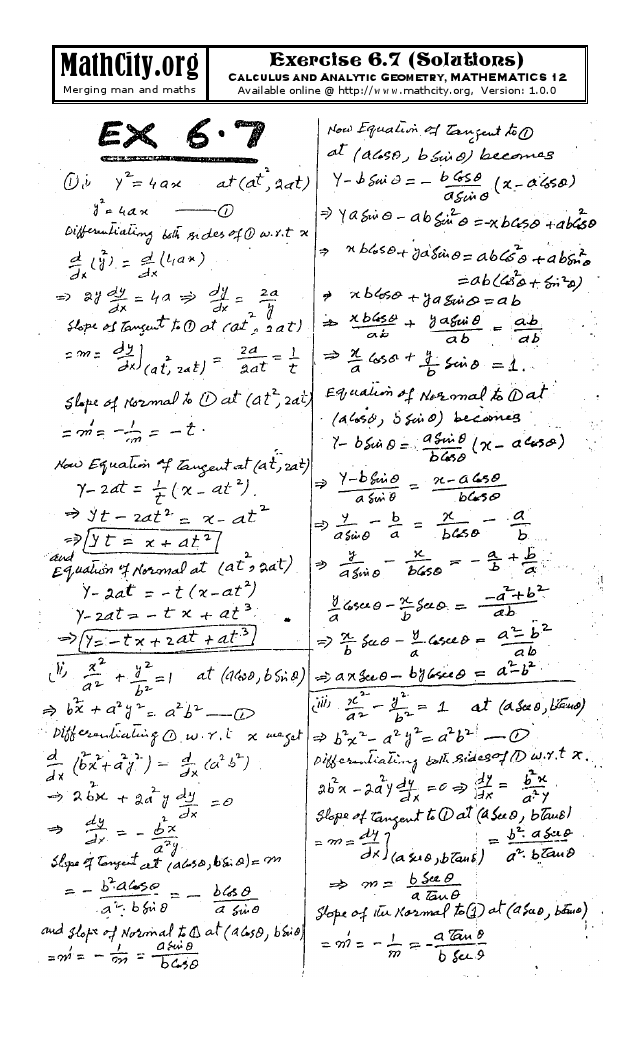 MathCity.org
Merging man and maths
Exercise 6.7 (Solutions)
CALCULUS AND ANALYTIC GEOMETRY, MATHEMATICS 12
Available online @ http://www.mathcity.org, Version: 1.0.0
EX 6.7
① i) y² = 4ax at (at², 2at)
y² = 4ax —— ①
Differentiating both sides of ① w.r.t x
d/dx (y²) = d/dx (4ax)
⇒ 2y dy/dx = 4a ⇒ dy/dx = 2a/y
Slope of Tangent to ① at (at², 2at)
= m = dy/dx](at², 2at) = 2a/2at = 1/t
Slope of Normal to ① at (at², 2at)
= m' = -1/m = -t.
Now Equation of Tangent at (at², 2at)
Y - 2at = 1/t (x - at²).
⇒ yt - 2at² = x - at²
⇒ yt = x + at²
and
Equation of Normal at (at², 2at)
Y - 2at = -t (x - at²)
Y - 2at = -tx + at³
⇒ y = -tx + 2at + at³
(ii) x²/a² + y²/b² = 1 at (a Cosθ, b Sinθ)
⇒ b²x² + a²y² = a²b² —— ①
Differentiating ① w.r.t x we get
d/dx (b²x² + a²y²) = d/dx (a²b²)
⇒ 2b²x + 2a²y dy/dx = 0
⇒ dy/dx = - b²x/a²y
Slope of Tangent at (a Cosθ, b Sinθ) = m
= - b² a Cosθ / a² · b Sinθ = - b Cosθ / a Sinθ
and Slope of Normal to ① at (a Cosθ, b Sinθ)
= m' = -1/m = a Sinθ / b Cosθ
Now Equation of Tangent to ①
at (a Cosθ, b Sinθ) becomes
Y - b Sinθ = - b Cosθ / a Sinθ (x - a Cosθ)
⇒ Ya Sinθ - ab Sin²θ = -xb Cosθ + ab Cos²θ
⇒ xb Cosθ + ya Sinθ = ab Cos²θ + ab Sin²θ
= ab (Cos²θ + Sin²θ)
⇒ xb Cosθ + ya Sinθ = ab
⇒ xb Cosθ / ab + ya Sinθ / ab = ab/ab
⇒ x/a Cosθ + y/b Sinθ = 1.
Equation of Normal to ① at
(a Cosθ, b Sinθ) becomes
Y - b Sinθ = a Sinθ / b Cosθ (x - a Cosθ)
⇒ Y - b Sinθ / a Sinθ = x - a Cosθ / b Cosθ
⇒ y / a Sinθ - b/a = x / b Cosθ - a/b
⇒ y / a Sinθ - x / b Cosθ = - a/b + b/a
y/a Cosecθ - x/b Secθ = -a² + b² / ab
⇒ x/b Secθ - y/a Cosecθ = a² - b² / ab
⇒ ax Secθ - by Cosecθ = a² - b²
(iii) x²/a² - y²/b² = 1 at (a Secθ, b tanθ)
⇒ b²x² - a²y² = a²b² —— ①
Differentiating both sides of ① w.r.t x.
2b²x - 2a²y dy/dx = 0 ⇒ dy/dx = b²x/a²y
Slope of Tangent to ① at (a Secθ, b tanθ)
= m = dy/dx](a Secθ, b tanθ) = b² · a Secθ / a² · b Tanθ
⇒ m = b Secθ / a Tanθ
Slope of the Normal to ① at (a Secθ, b tanθ)
= m' = -1/m = - a Tanθ / b Secθ